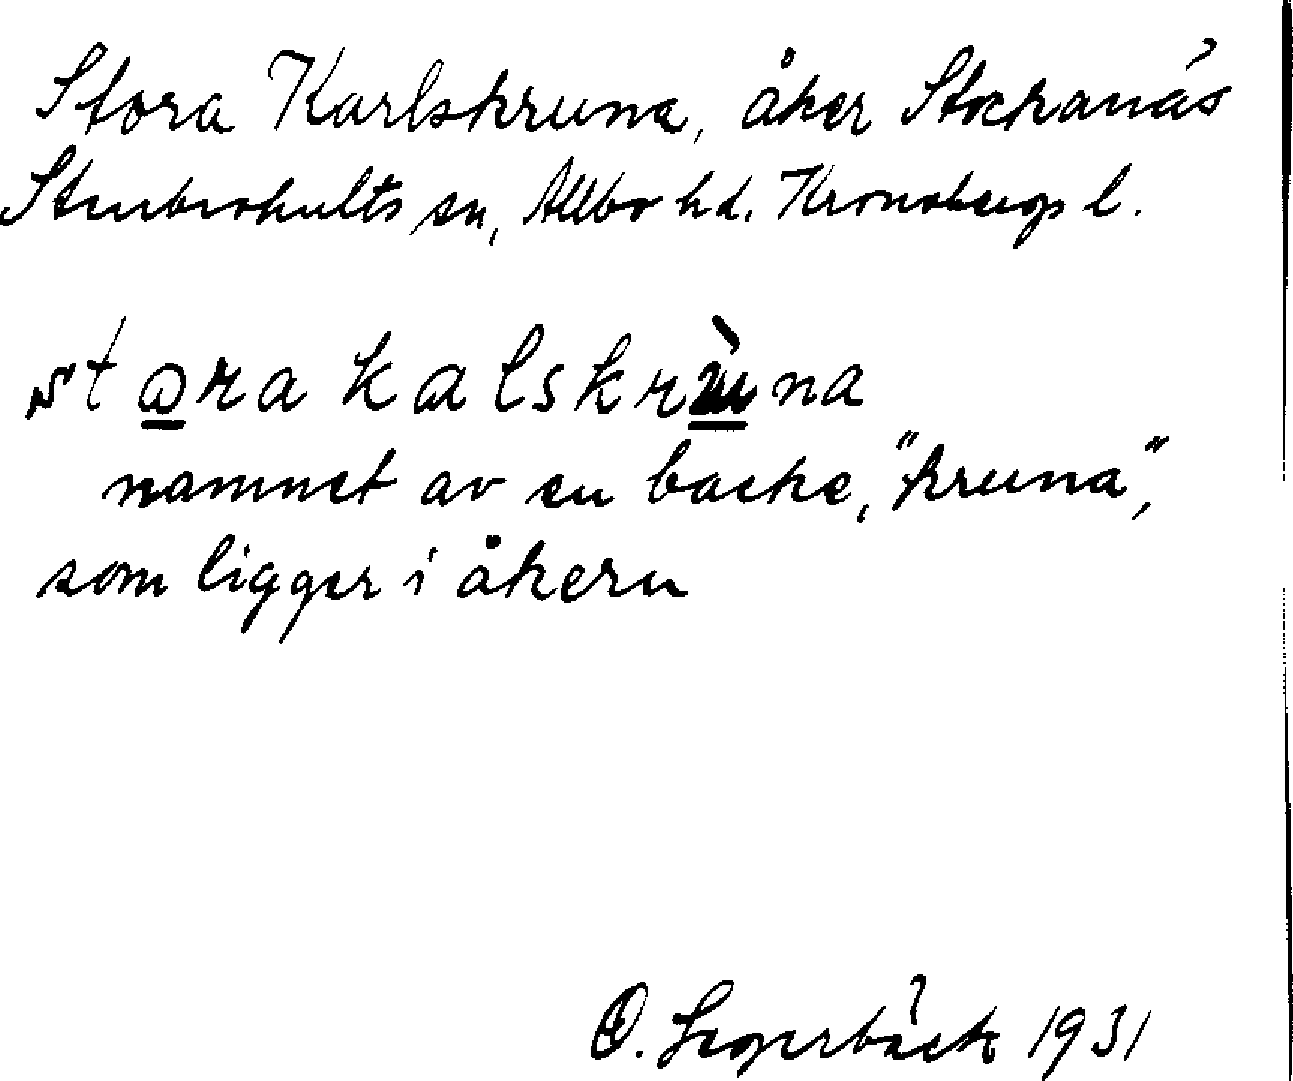 Stora Karlskruna, åker Stockanäs
Stenbrohults sn, Allbo hd. Kronobergs l.
stora kalskrùna
namnet av en backe, "kruna",
som ligger i åkern
O. Segerbäck 1931